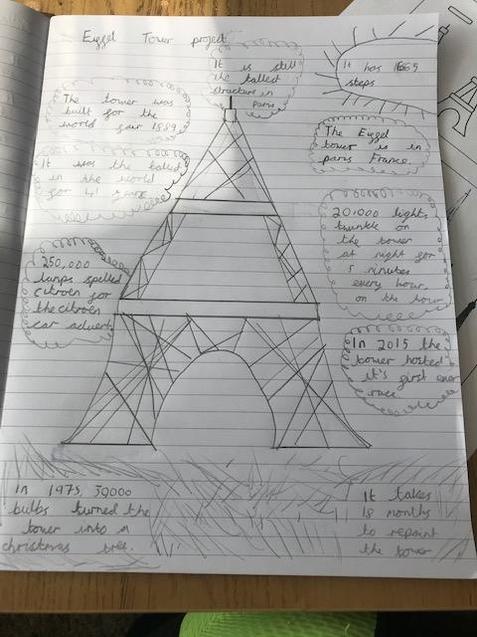 Eiggel Tower project
It is still
the tallest
structure in
paris
It has 1669
steps
The tower was
built for the
world gair 1889
The Eiggel
tower is in
paris France.
It was the tallest
in the world
gor 41 years
20.000 lights
twinkle on
the tower
at night for
5 minutes
every hour,
on the hour
250,000
lamps spelled
citroen gor
the citroen
car adverts
In 2015 the
tower hosted
it's girst ever
race
In 1975, 30000
bulbs turned the
tower into a
christmas tree.
It takes
18 months
to repaint
the tower